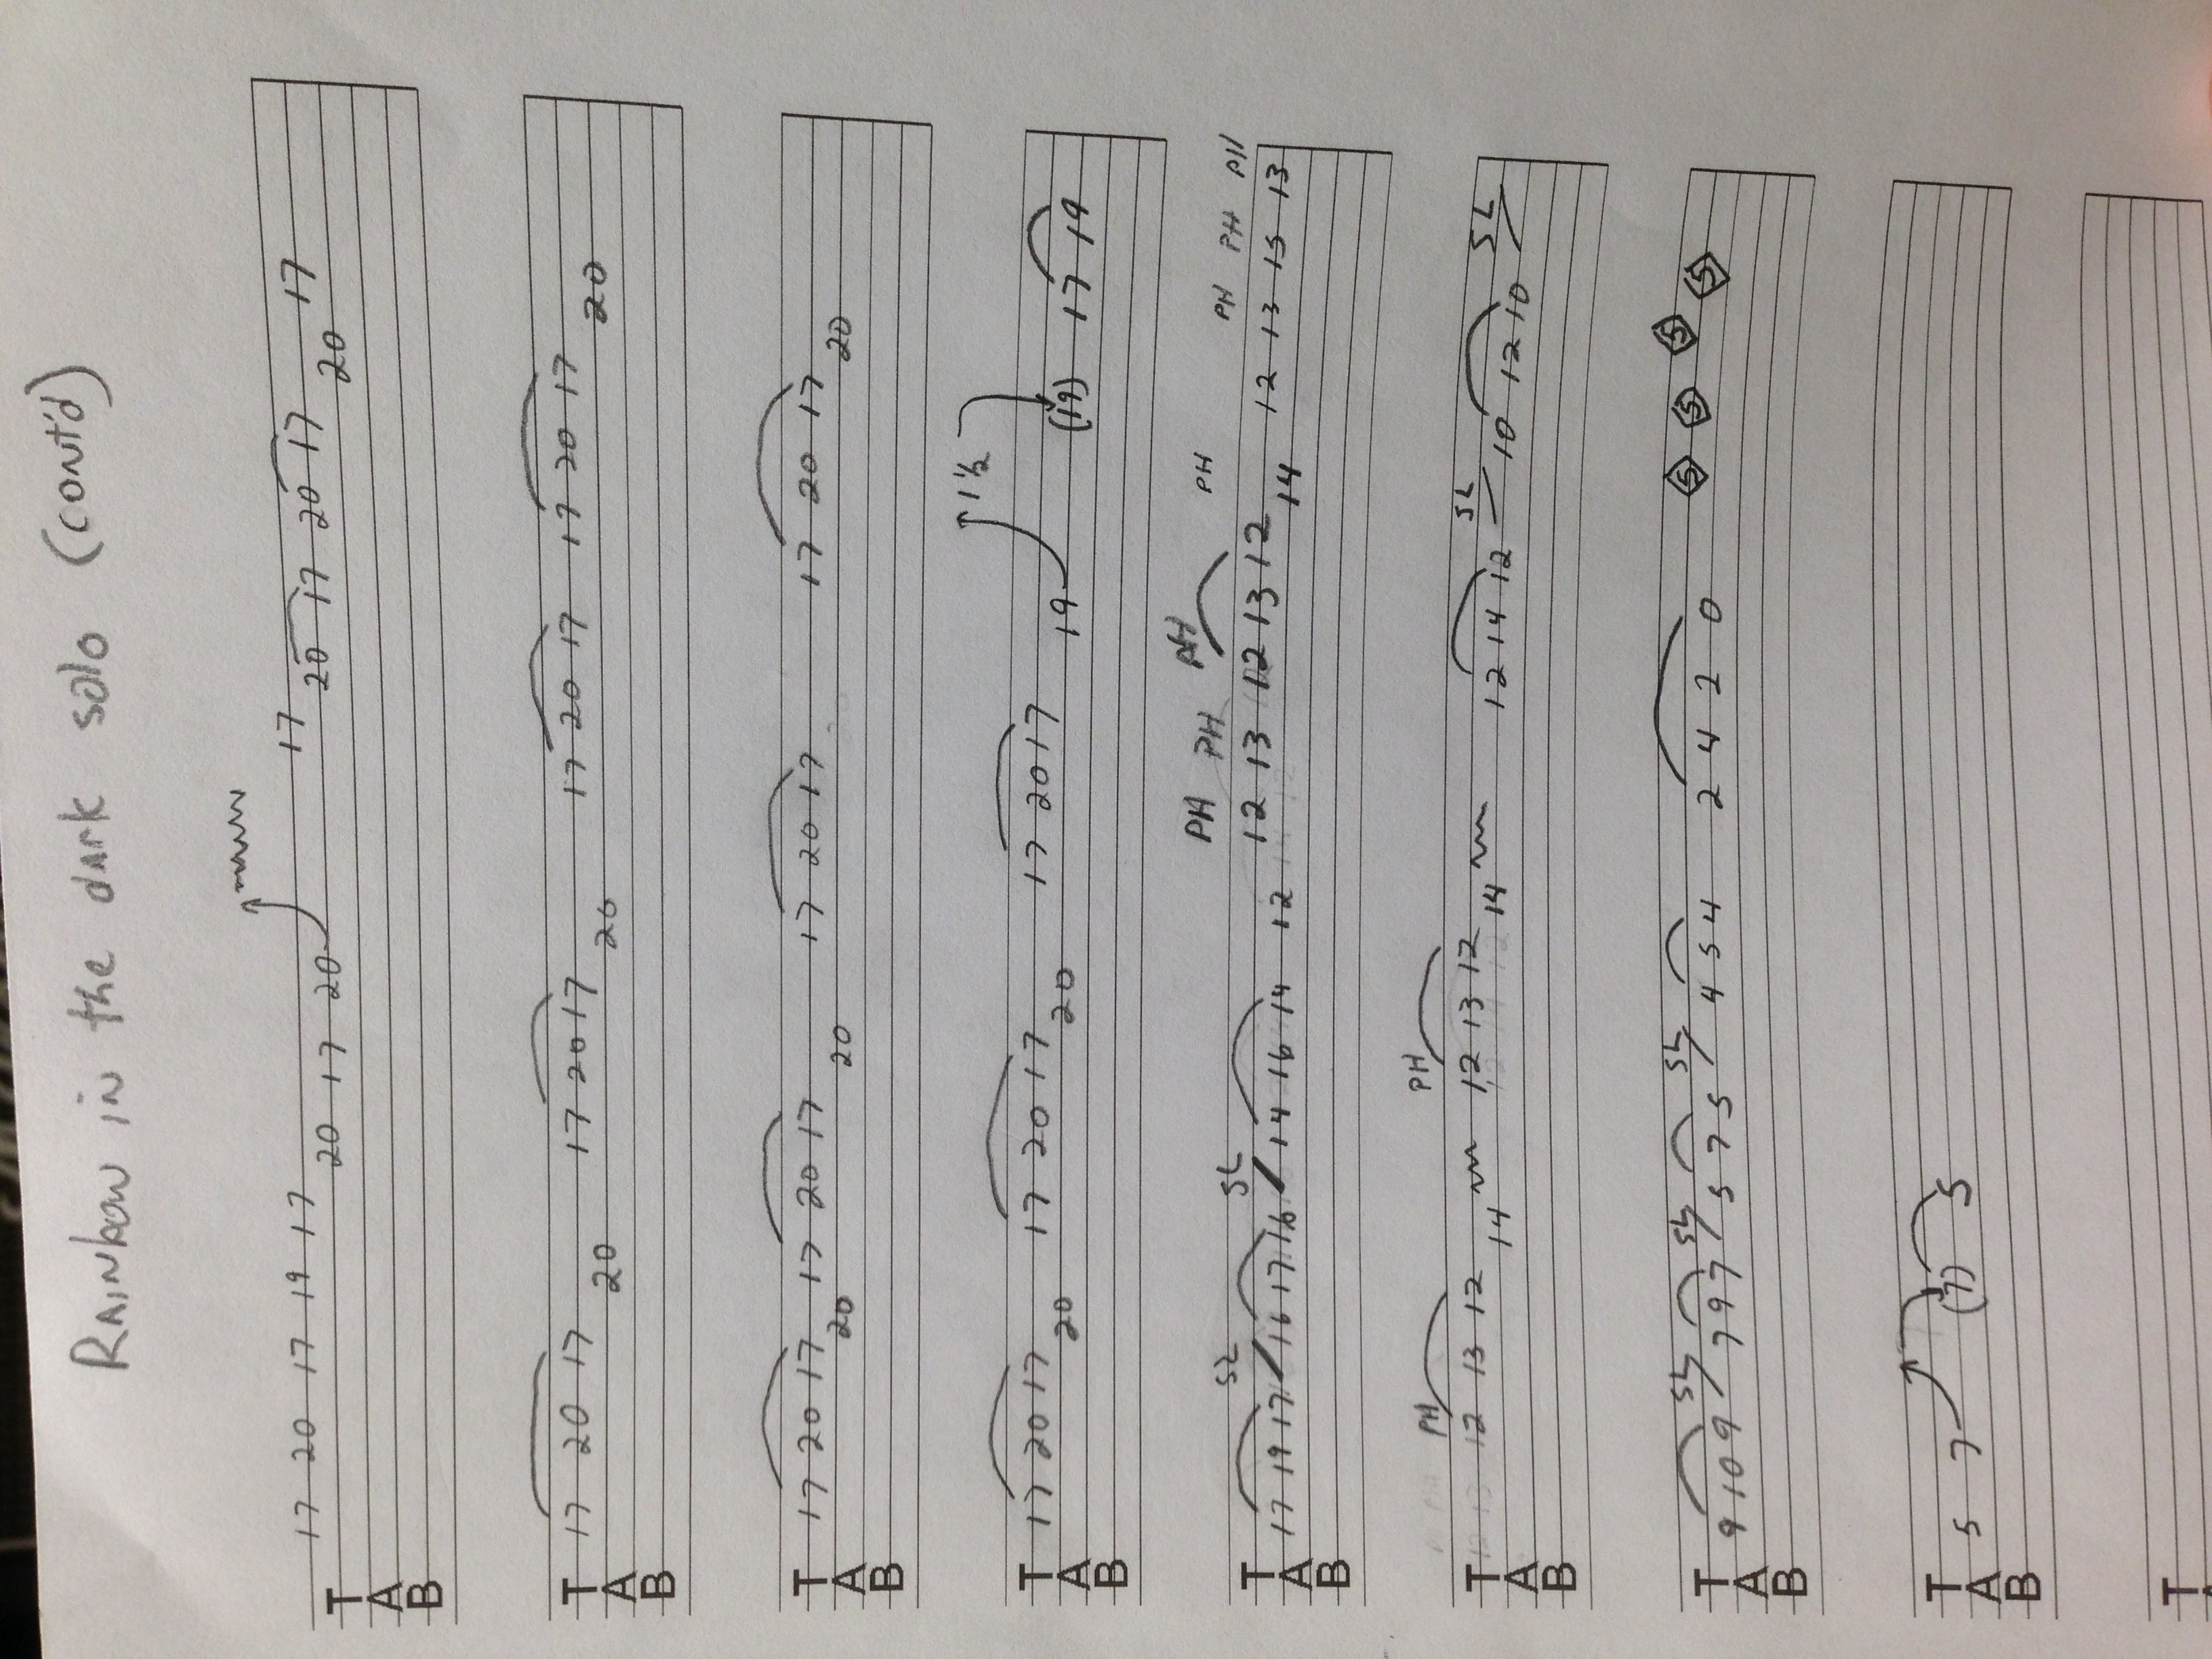 RAINbow in the dark solo (cont'd)
17 20 17 19 17 20 17 20 17 20 17 20 17 20 17
T
A
B
17 20 17 20 17 20 17 20 17 20 17 17 20 17 20
T
A
B
17 20 17 20 17 20 17 20 17 20 17 17 20 17 20
T
A
B
1½
17 20 17 20 17 20 17 20 17 20 17 19 (19) 17 19
T
A
B
SL SL PH PH PH PH PH PH PH
17 19 17 16 17 16 14 16 14 12 12 13 12 13 12 14 12 13 15 13
T
A
B
PH PH SL SL
12 13 12 14 12 13 12 14 12 14 12 10 12 10
T
A
B
SL SL SL
9 10 9 7 9 7 5 7 5 4 5 4 2 4 2 0 5 5 5 5
T
A
B
5 7 (7) 5
T
A
B
T